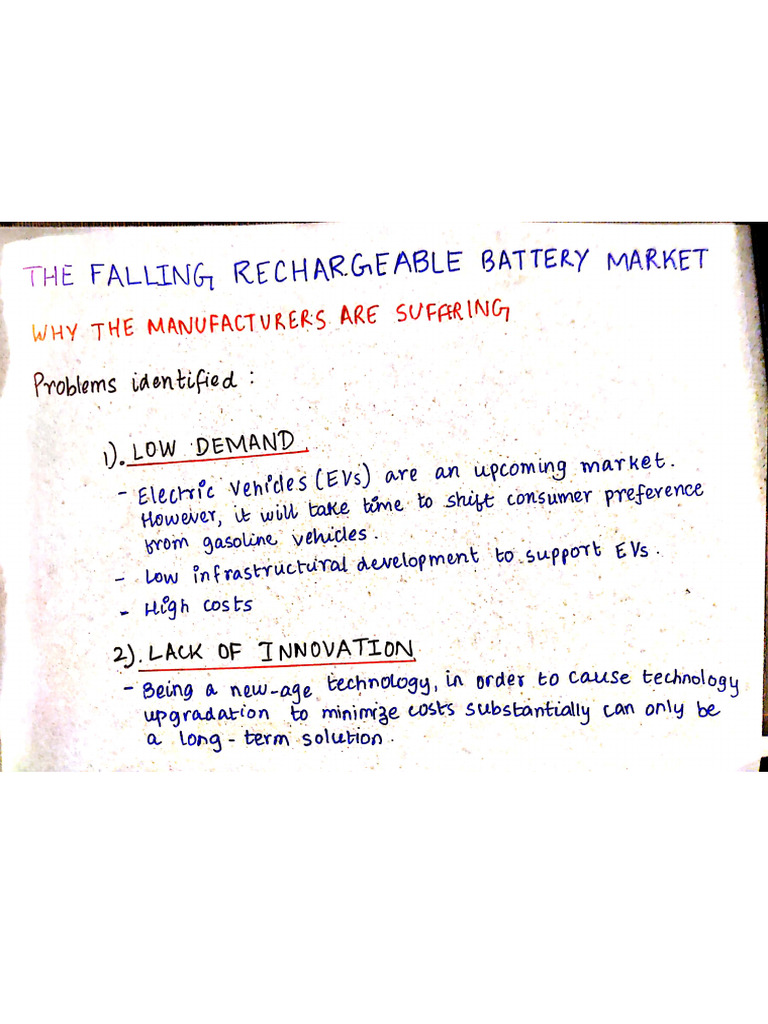 THE FALLING RECHARGEABLE BATTERY MARKET
WHY THE MANUFACTURERS ARE SUFFERING
Problems identified :
1). LOW DEMAND
- Electric vehicles (EVs) are an upcoming market.
However, it will take time to shift consumer preference
from gasoline vehicles.
- Low infrastructural development to support EVs.
- High costs
2). LACK OF INNOVATION
- Being a new-age technology, in order to cause technology
upgradation to minimize costs substantially can only be
a long-term solution.